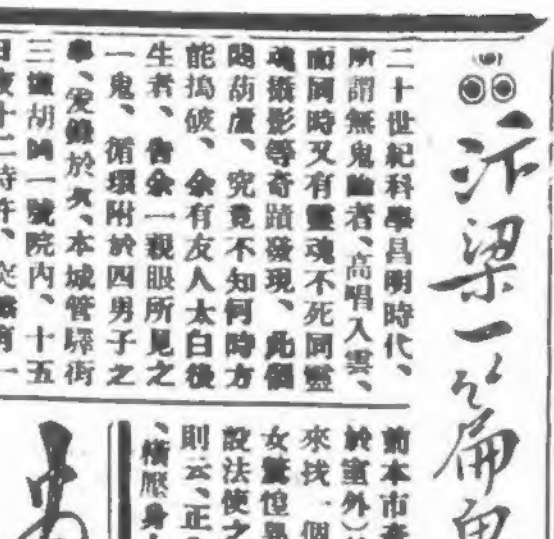 汴梁一篇鬼
二十世紀科學昌明時代、
所謂無鬼論者、高唱入雲、
而同時又有靈魂不死同靈
魂攝影等奇蹟發現、此個
悶葫蘆、究竟不知何時方
能搗破、余有友人太白後
生者、告余一親眼所見之
一鬼、循環附於四男子之
事、爰錄於次、本城管驛街
三道胡同一號院内、十五
日夜十二時許、突然有一
前本市
於室外）
來找一個
女驚惶
設法使之
則云、正
、橫壓身